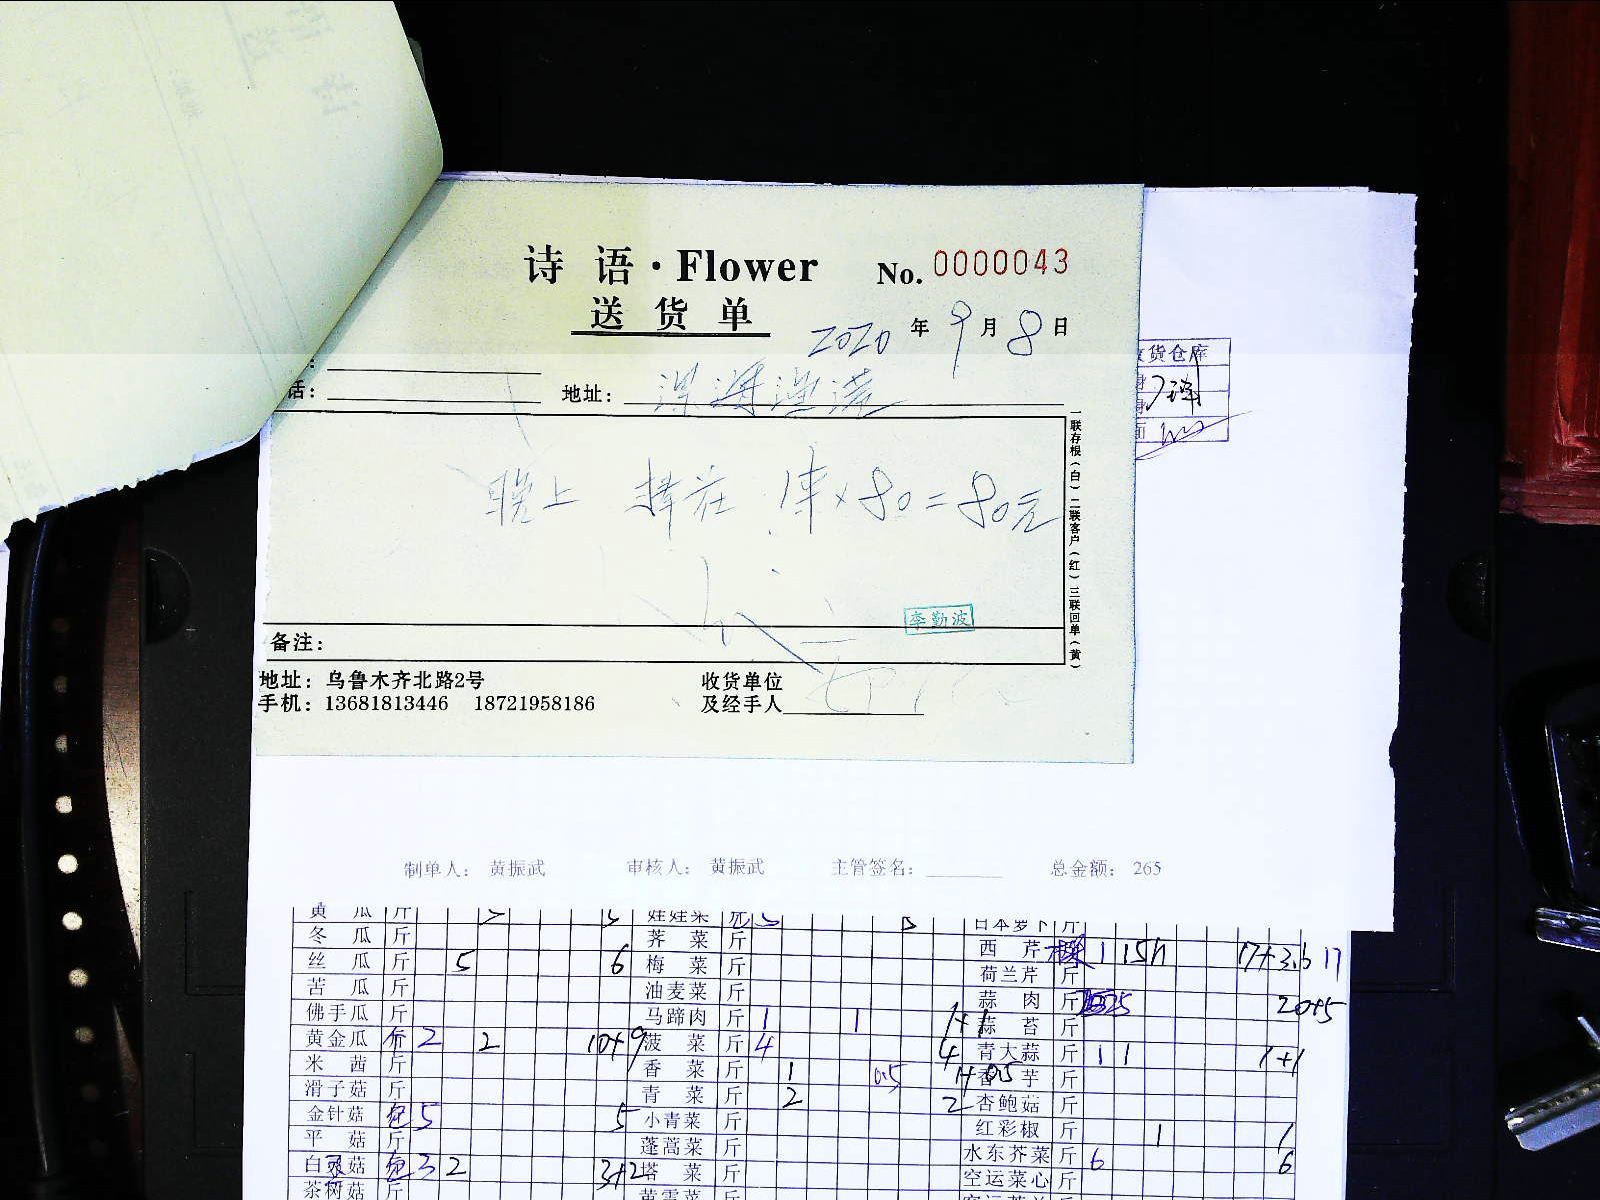 诗 语·Flower No. 0000043
送 货 单
2020 年 9 月 8 日
话：
地址：
晚上 1 × 80 = 80元
李勤波
备注：
地址：乌鲁木齐北路2号
手机：13681813446 18721958186
收货单位
及经手人
一联存根（白）二联客户（红）三联回单（黄）
货仓库
制单人： 黄振武 审核人： 黄振武 主管签名： 总金额： 265
黄 瓜 斤 娃娃菜 日本萝卜 斤
冬 瓜 斤 荠 菜 斤 西 芹 1 17+3.6 17
丝 瓜 斤 5 6 梅 菜 斤 荷兰芹 斤
苦 瓜 斤 油麦菜 斤 蒜 肉 斤 25 20+5
佛手瓜 斤 马蹄肉 斤 1 1 1+1 蒜 苔 斤
黄金瓜 2 2 10+9 菠 菜 斤 4 4 青大蒜 斤 1 1 1+1
米 茜 斤 香 菜 斤 1 0.5 1+0.5 香 芋 斤
滑子菇 斤 青 菜 斤 2 2 杏鲍菇 斤
金针菇 包 5 5 小青菜 斤 红彩椒 斤 1 1
平 菇 斤 蓬蒿菜 斤 水东芥菜 斤 6 6
白灵菇 包 3 2 3+2 塔 菜 斤 空运菜心 斤
茶树菇 斤